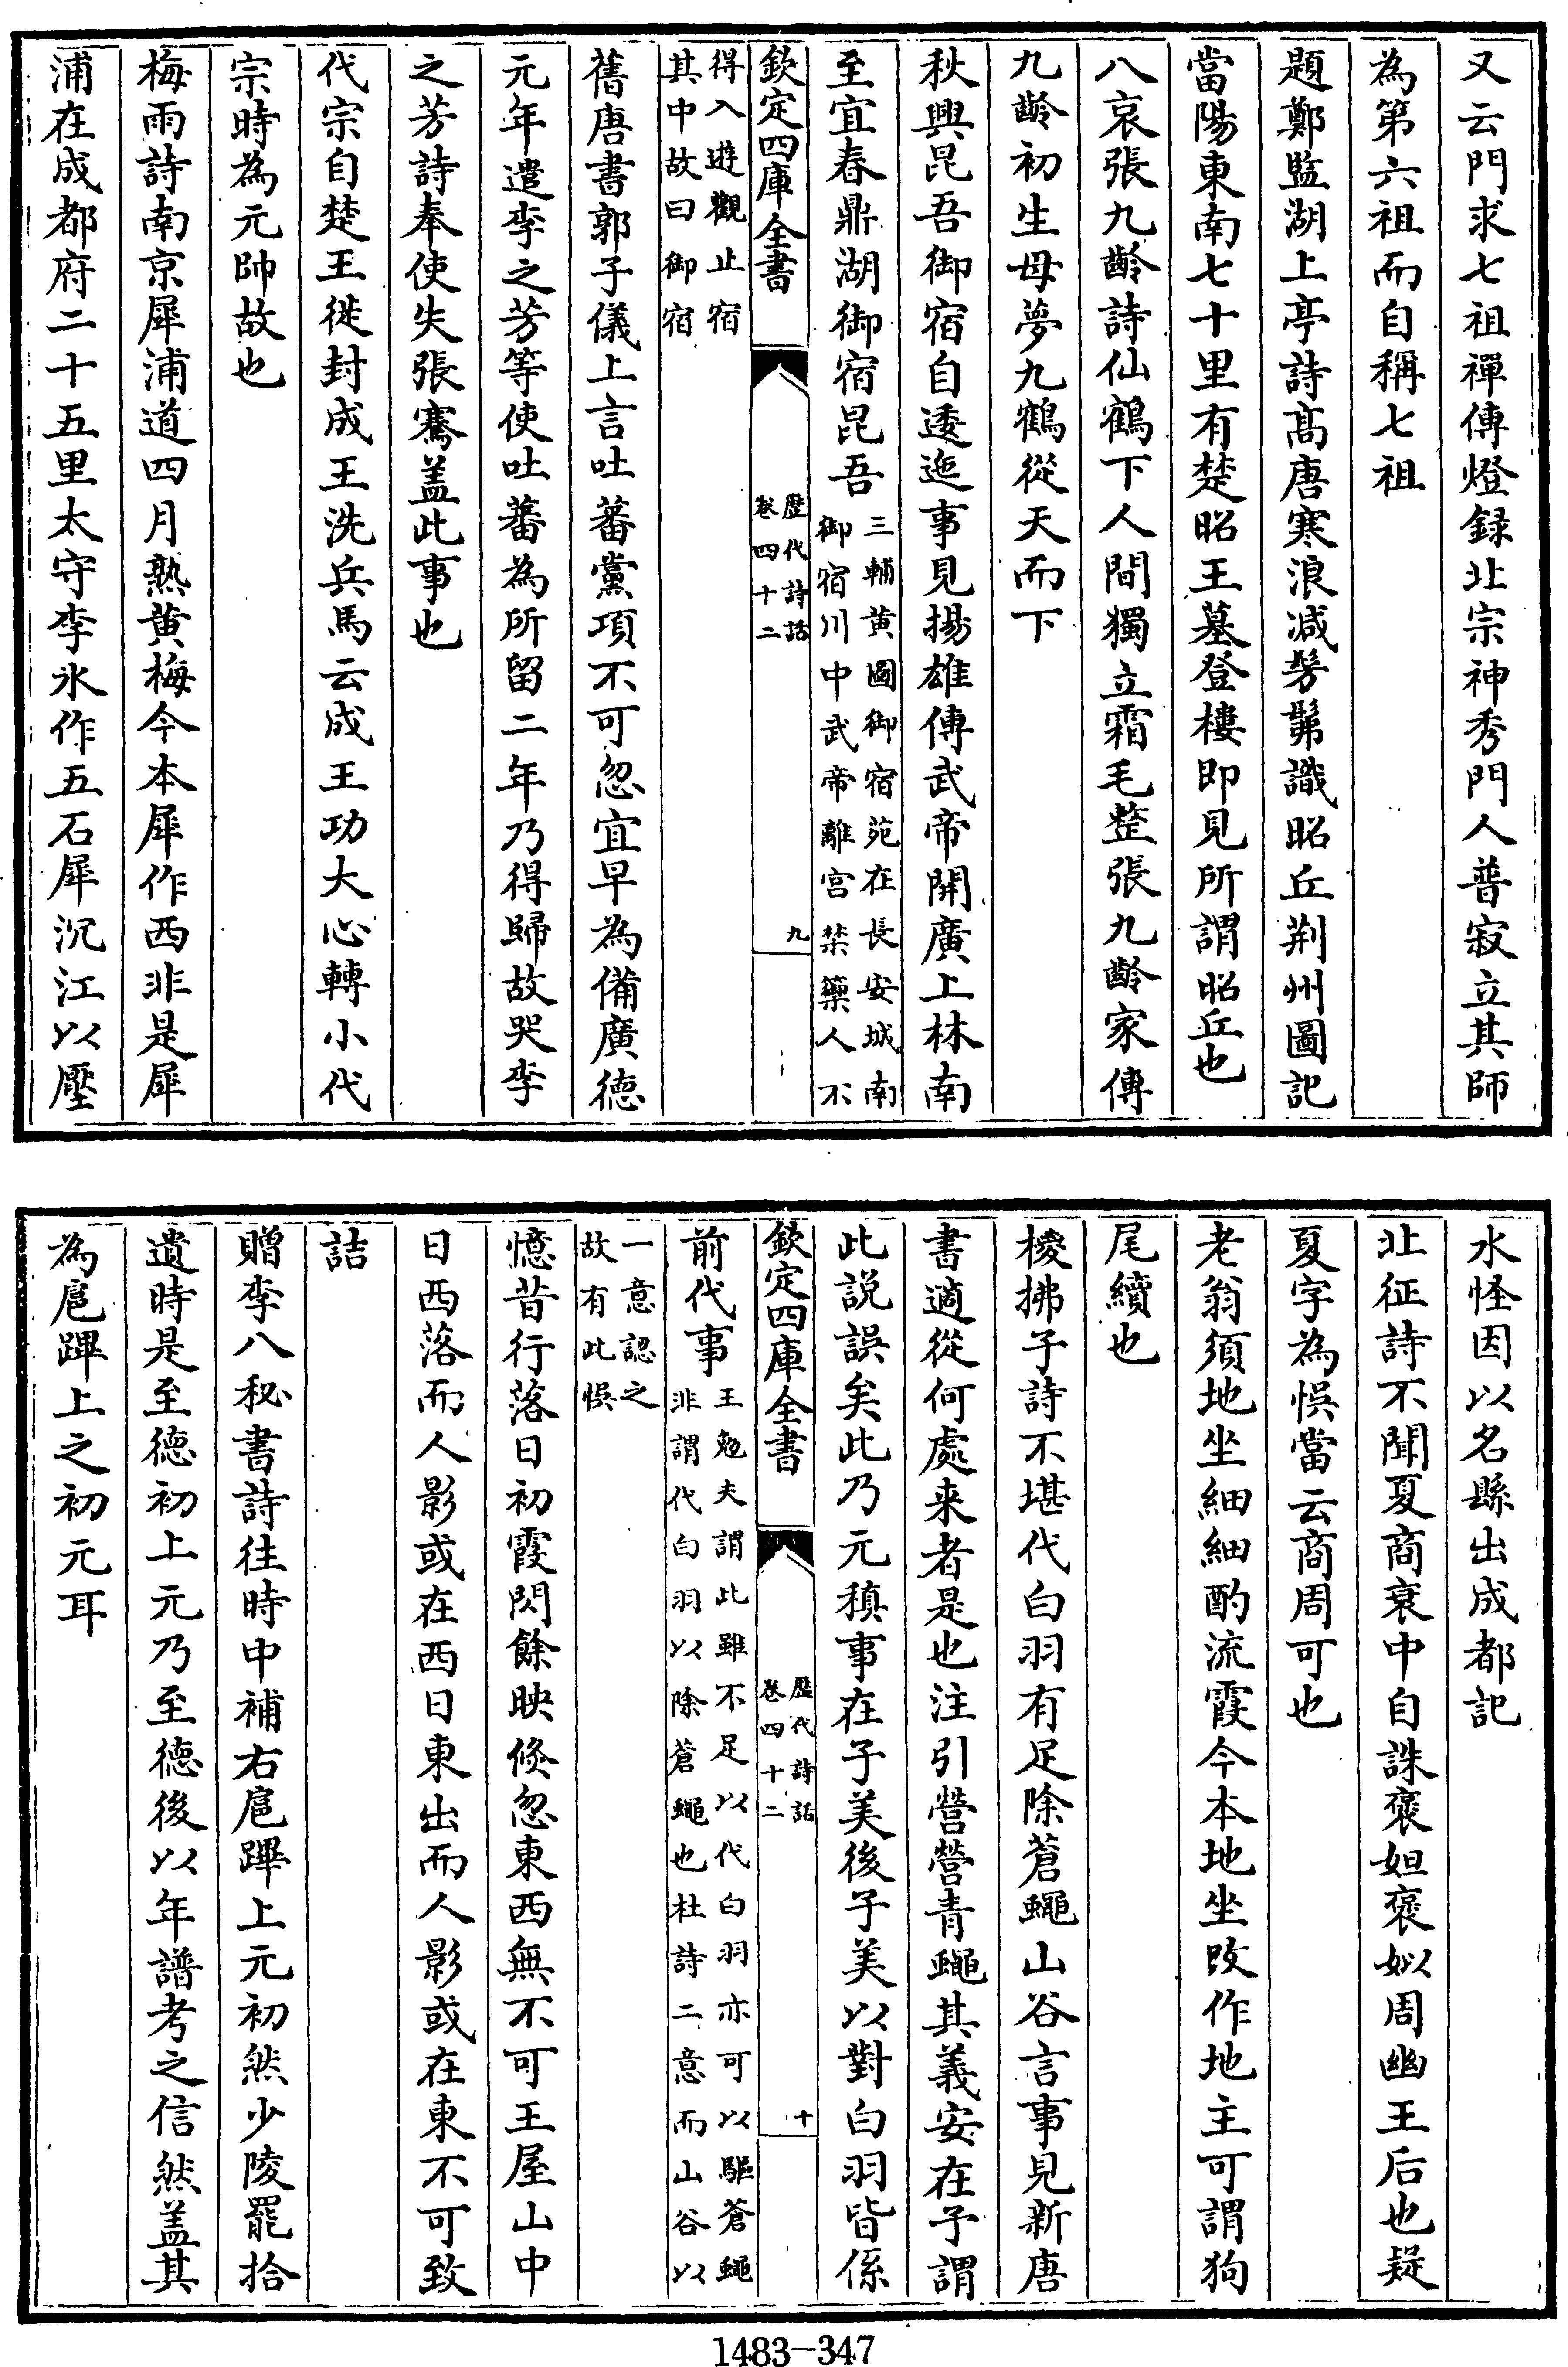 又云門求七祖禪傳燈録北宗神秀門人普寂立其師
為第六祖而自稱七祖
題鄭監湖上亭詩髙唐寒浪减髣髴識昭丘荆州圖記
當陽東南七十里有楚昭王墓登樓即見所謂昭丘也
八哀張九齡詩仙鶴下人間獨立霜毛整張九齡家傳
九齡初生母夢九鶴從天而下
秋興昆吾御宿自逶迤事見揚雄傳武帝開廣上林南
至宜春鼎湖御宿昆吾三輔黄圖御宿苑在長安城南
御宿川中武帝離宫禁籞人不
欽定四庫全書
歴代詩話
卷四十二
九
得入遊觀止宿
其中故曰御宿
舊唐書郭子儀上言吐蕃黨項不可忽宜早為備廣德
元年遣李之芳等使吐蕃為所留二年乃得歸故哭李
之芳詩奉使失張騫盖此事也
代宗自楚王徙封成王洗兵馬云成王功大心轉小代
宗時為元帥故也
梅雨詩南京犀浦道四月熟黄梅今本犀作西非是犀
浦在成都府二十五里太守李氷作五石犀沉江以壓
水怪因以名縣出成都記
北征詩不聞夏商衰中自誅褒妲褒姒周幽王后也疑
夏字為悞當云商周可也
老翁須地坐細細酌流霞今本地坐改作地主可謂狗
尾續也
椶拂子詩不堪代白羽有足除蒼蠅山谷言事見新唐
書適從何處来者是也注引營營青蠅其義安在予謂
此説誤矣此乃元稹事在子美後子美以對白羽皆係
欽定四庫全書
歴代詩話
卷四十二
十
前代事王勉夫謂此雖不足以代白羽亦可以驅蒼蠅
非謂代白羽以除蒼蠅也杜詩二意而山谷以
一意認之
故有此悞
憶昔行落日初霞閃餘映倐忽東西無不可王屋山中
日西落而人影或在西日東出而人影或在東不可致
詰
贈李八秘書詩往時中補右扈蹕上元初然少陵罷拾
遺時是至德初上元乃至德後以年譜考之信然盖其
為扈蹕上之初元耳
1483-347